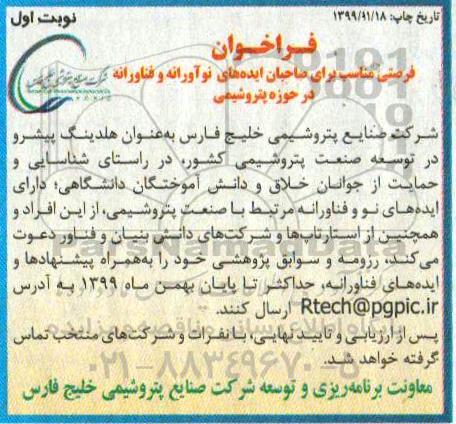 تاریخ چاپ: ۱۳۹۹/۱۱/۱۸
نوبت اول
فراخوان
فرصتی مناسب برای صاحبان ایده‌های نوآورانه و فناورانه
در حوزه پتروشیمی
شرکت صنایع پتروشیمی خلیج فارس به‌عنوان هلدینگ پیشرو
در توسعه صنعت پتروشیمی کشور، در راستای شناسایی و
حمایت از جوانان خلاق و دانش آموختگان دانشگاهی؛ دارای
ایده‌های نو و فناورانه مرتبط با صنعت پتروشیمی، از این افراد و
همچنین از استارتاپ‌ها و شرکت‌های دانش بنیان و فناور دعوت
می‌کند، رزومه و سوابق پژوهشی خود را به‌همراه پیشنهادها و
ایده‌های فناورانه، حداکثر تا پایان بهمن ماه ۱۳۹۹ به آدرس
Rtech@pgpic.ir ارسال کنند.
پس از ارزیابی و تایید نهایی، با نفرات و شرکت‌های منتخب تماس
گرفته خواهد شد.
۰۲۱-۸۸۳۴۹۶۷۰-۵
معاونت برنامه‌ریزی و توسعه شرکت صنایع پتروشیمی خلیج فارس